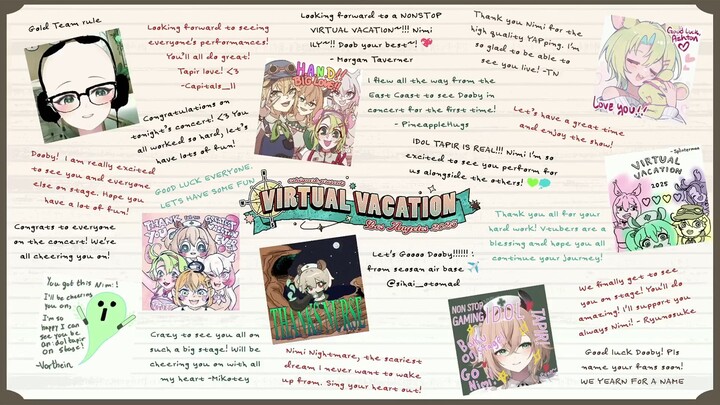 Gold Team rule
Looking forward to seeing
everyone's performances!
You'll all do great!
Tapir love! <3
-Capitals_11
Looking forward to a NONSTOP
VIRTUAL VACATION~!!! Nimi
ILY~!! Doob your best~! 💖
- Morgan Taverner
Thank you Nimi for the
high quality YAPping. I'm
so glad to be able to
see you live! -TN
Good luck,
Ashton
LOVE YOU!!
HAND!!
BIG LOVE!!
Congratulations on
tonight's concert! <3 You
all worked so hard, let's
have lots of fun!
I flew all the way from the
East Coast to see Dooby in
concert for the first time!
- PineappleHugs
Let's have a great time
and enjoy the show!
IDOL TAPIR IS REAL!!! Nimi I'm so
excited to see you perform for
us alongside the others! 💚💙
Dooby! I am really excited
to see you and everyone
else on stage. Hope you
have a lot of fun!
GOOD LUCK EVERYONE.
LETS HAVE SOME FUN
VIRTUAL VACATION
VIRTUAL
VACATION
2025
Congrats to everyone
on the concert! We're
all cheering you on!
Thank you all for your
hard work! Vtubers are a
blessing and hope you all
continue your journey!
Let's Goooo Dooby!!!!!! :
from seosan air base ✈️
@sikai_otomad
THANKS NURSE
You got this Nim:!
I'll be cheering
you on,
I'm so
happy I can
see you be
an :dol tapir
on stage!
-Vorthein
NON STOP
GAMING IDOL
TAPIR!
GO Nimi
We finally get to see
you on stage! You'll do
amazing! I'll support you
always Nimi! - Ryunosuke
Crazy to see you all on
such a big stage! Will be
cheering you on with all
my heart -Mikotey
Nimi Nightmare, the scariest
dream I never want to wake
up from. Sing your heart out!
Good luck Dooby! Pls
name your fans soon!
WE YEARN FOR A NAME